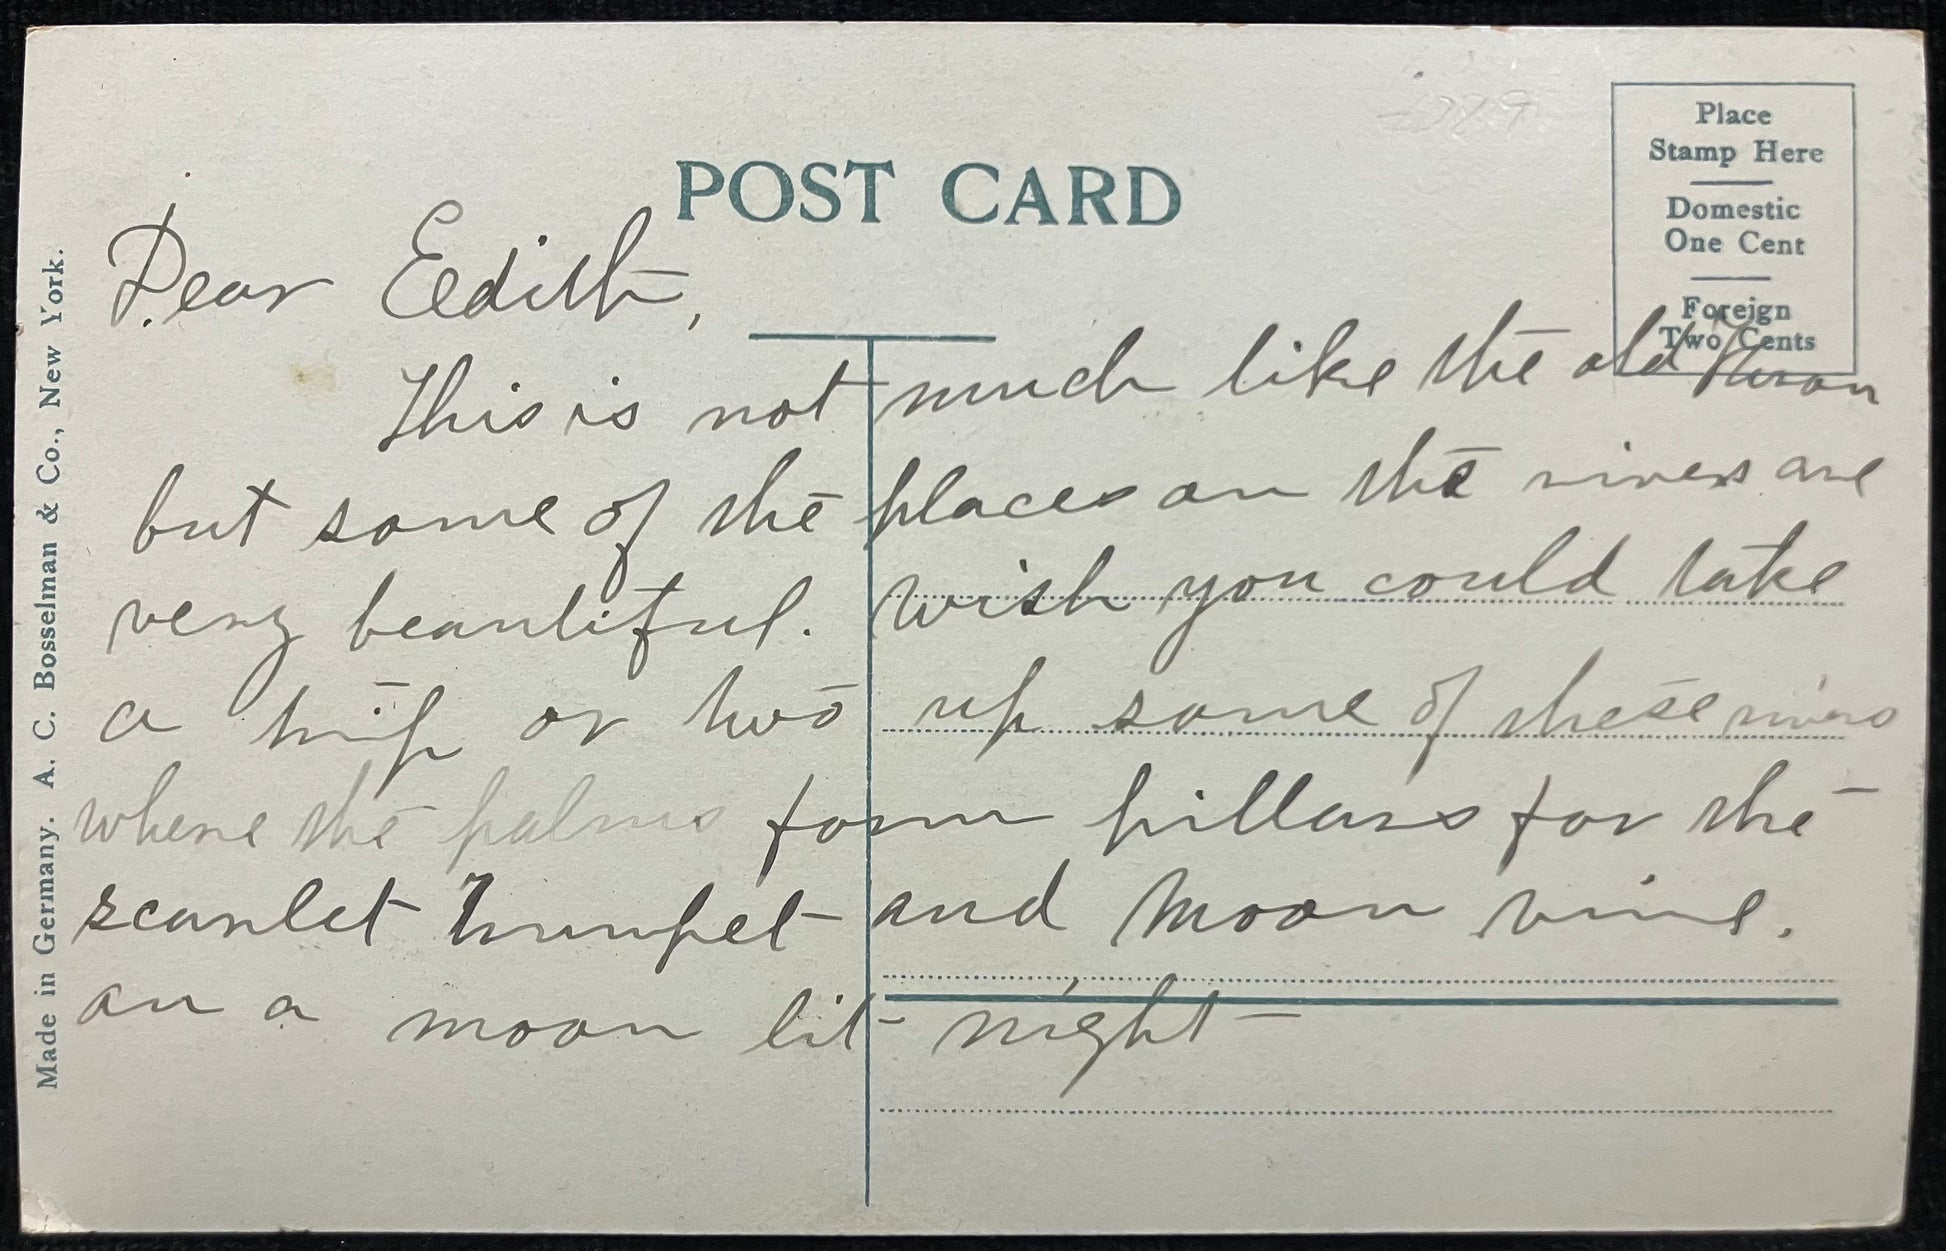 POST CARD
Place
Stamp Here
Domestic
One Cent
Foreign
Two Cents
Made in Germany. A. C. Bosselman & Co., New York.
Dear Edith,
This is not much like the old Huron
but some of the places on the rivers are
very beautiful. Wish you could take
a trip or two up some of these rivers
where the palms form pillars for the
scarlet trumpet and moon vine.
on a moon lit night